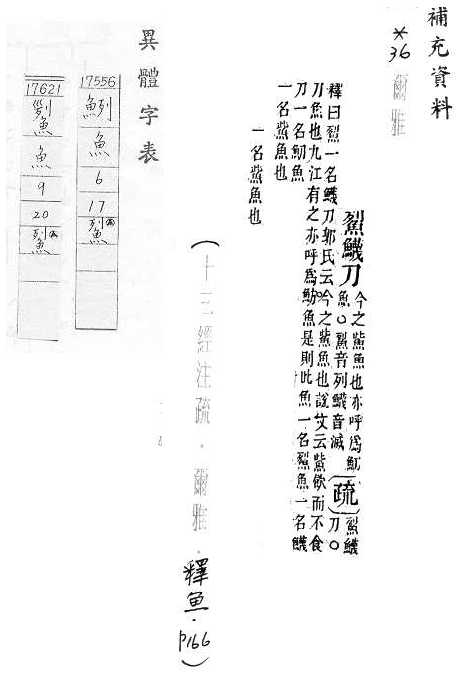 補充資料
*36 爾雅
鮤鱴刀
今之鮆魚也亦呼為魛
魚○鮤音列鱴音滅
疏
鮤鱴
刀○
釋曰鮤一名鱴刀郭氏云今之鮆魚也說文云鮆飲而不食
刀魚也九江有之亦呼為魛魚是則此魚一名鮤魚一名鱴
刀一名魛魚
一名鮆魚也
一名鮆魚也
(十三經注疏.爾雅.釋魚.P166)
異體字表
17556
鮤
魚
6
17
17621
魚
9
20